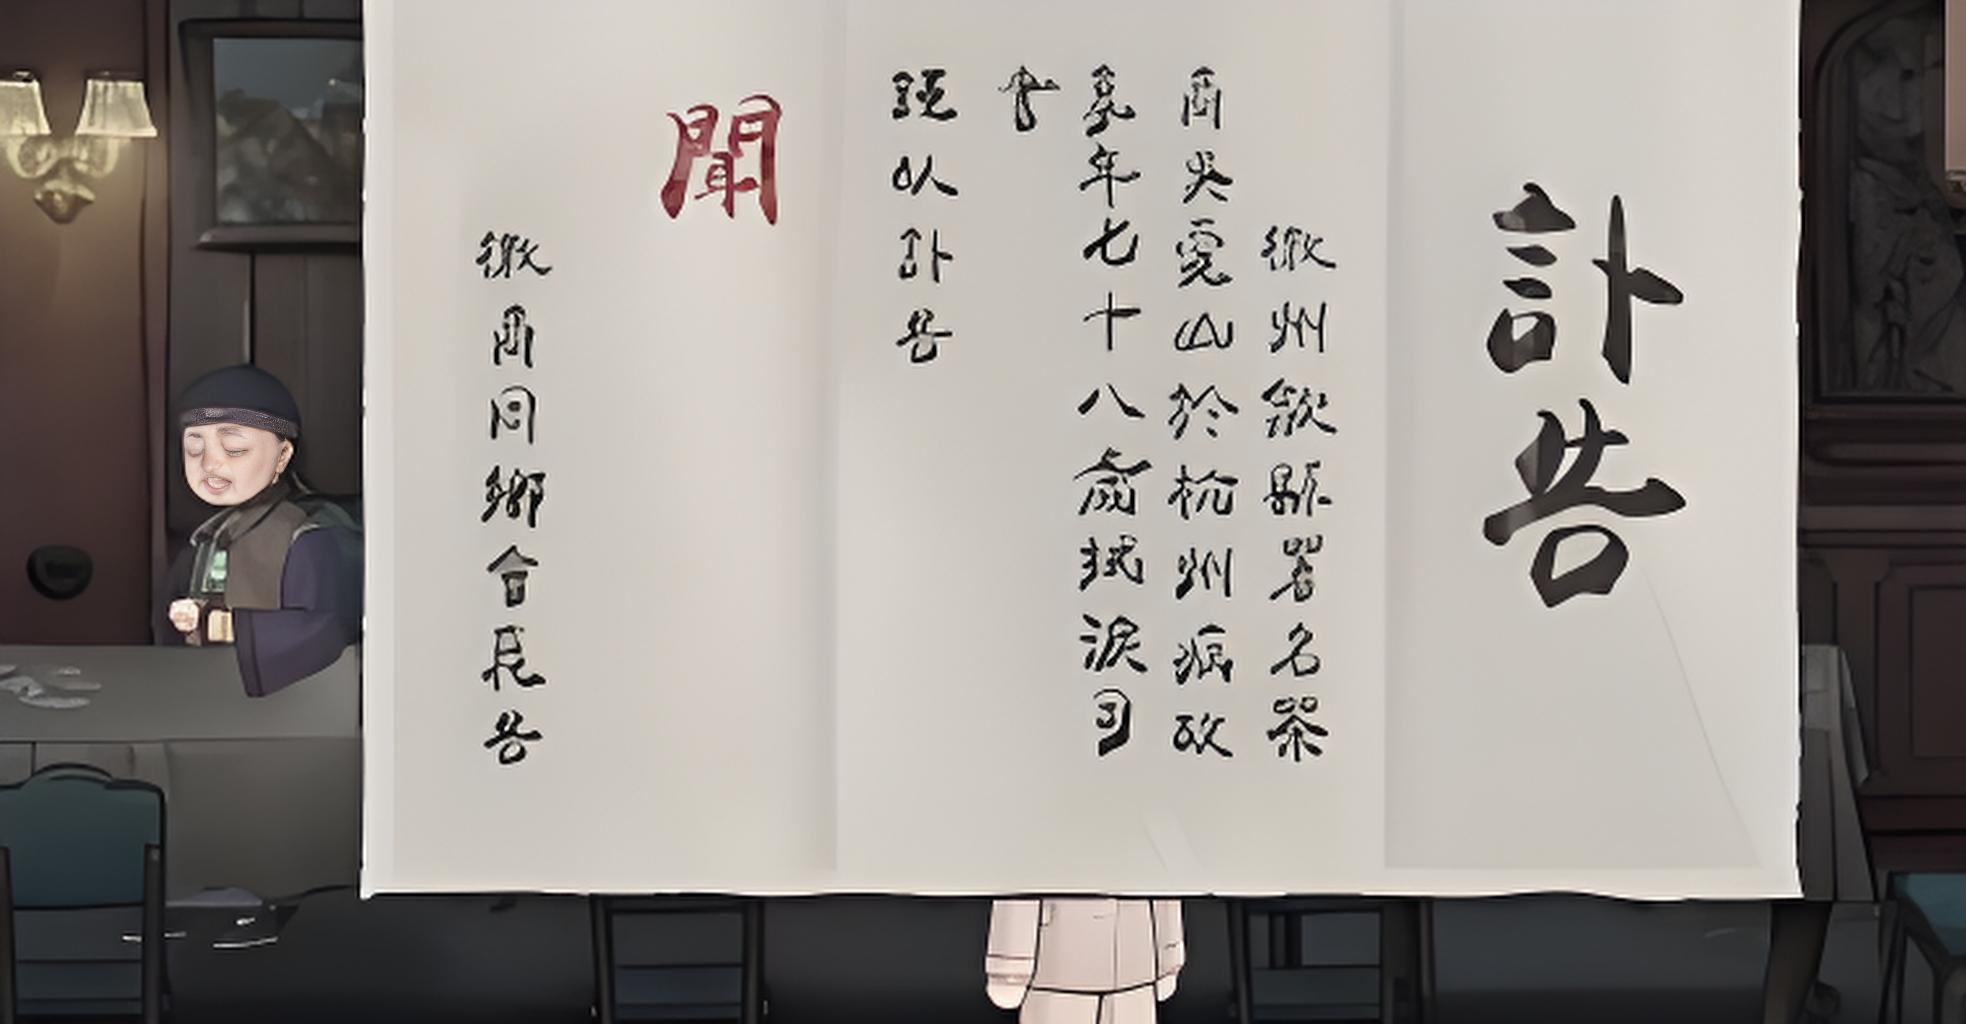 訃告
徽州歙縣著名茶
商吳雲山於杭州病故
享年七十八歲拭淚司
現以訃告
聞
徽商同鄉會告